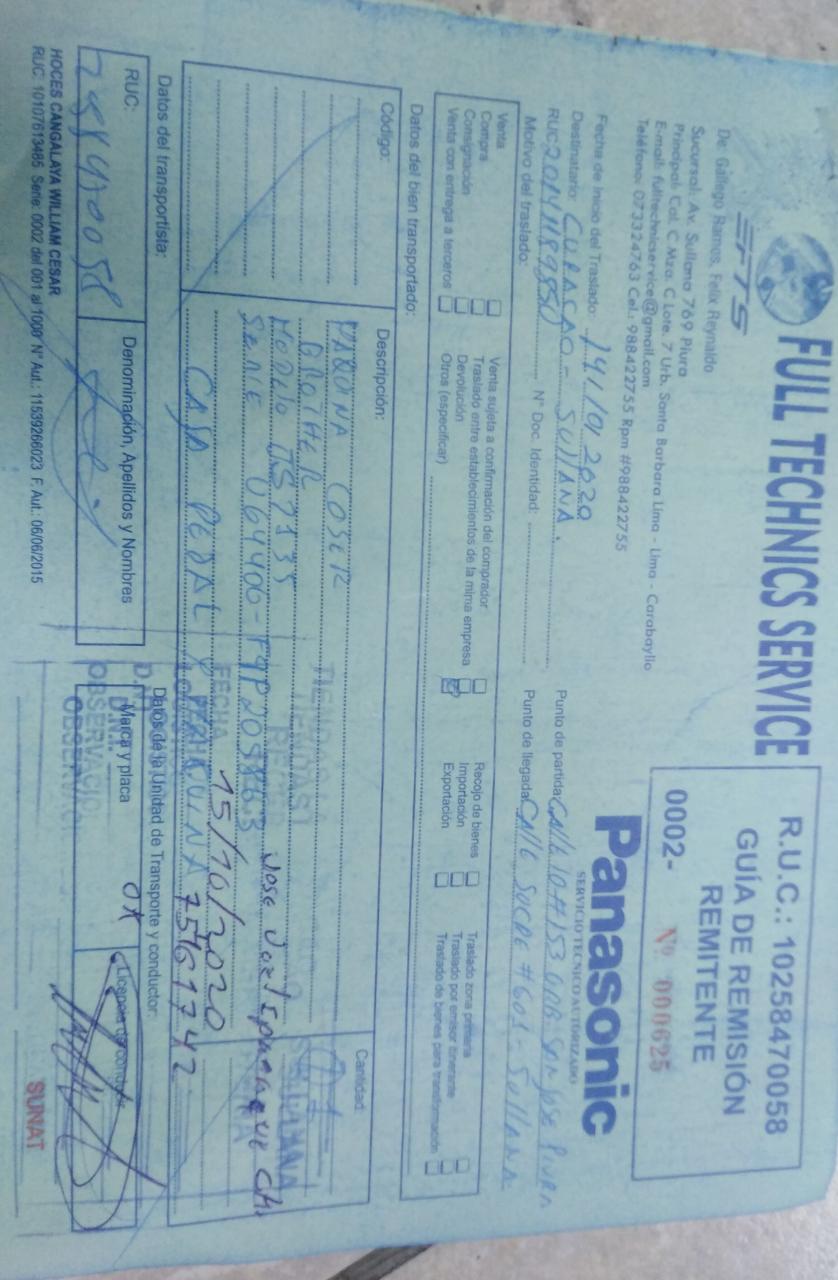 FULL TECHNICS SERVICE
SFTS
De: Gallego Ramos, Felix Reynaldo
Sucursal: Av. Sullana 769 Piura
Principal: Cal. C Mza. C Lote. 7 Urb. Santa Barbara Lima - Lima - Carabayllo
E-mail: fulltechnicservice@gmail.com
Teléfono: 073324763 Cel.: 988422755 Rpm #988422755
R.U.C.: 10258470058
GUÍA DE REMISIÓN
REMITENTE
0002- Nº 000625
Panasonic
SERVICIO TECNICO AUTORIZADO
Fecha de Inicio del Traslado: 14/10/2020
Destinatario: CURACAO - SULLANA.
RUC: 20141189850 N° Doc. Identidad:
Motivo del traslado:
Punto de partida: Calle 10 # 153 URB San Jose Piura
Punto de llegada: Calle SUCRE # 601 - Sullana
Venta
Compra
Consignación
Venta con entrega a terceros
Venta sujeta a confirmación del comprador
Traslado entre establecimientos de la mima empresa
Devolución
Otros (especificar)
Recojo de bienes
Importación
Exportación
Traslado zona primaria
Traslado por emisor itinerante
Traslado de bienes para transformación
Datos del bien transportado:
Código: Descripción: Cantidad:
MAQUINA COSER
BROTHER
MODELO JS7135
SERIE U64406-
CASA PEDAL Y MAQUINA
FECHA
15/10/2020
75461742
Datos del transportista:
Datos de la Unidad de Transporte y conductor:
RUC: Denominación, Apellidos y Nombres Marca y placa Licencia de conducir
OBSERVACIO
HOCES CANGALAYA WILLIAM CESAR
RUC: 10107613485 Serie: 0002 del 001 al 1000 N° Aut.: 11539266023 F. Aut.: 06/06/2015
SUNAT